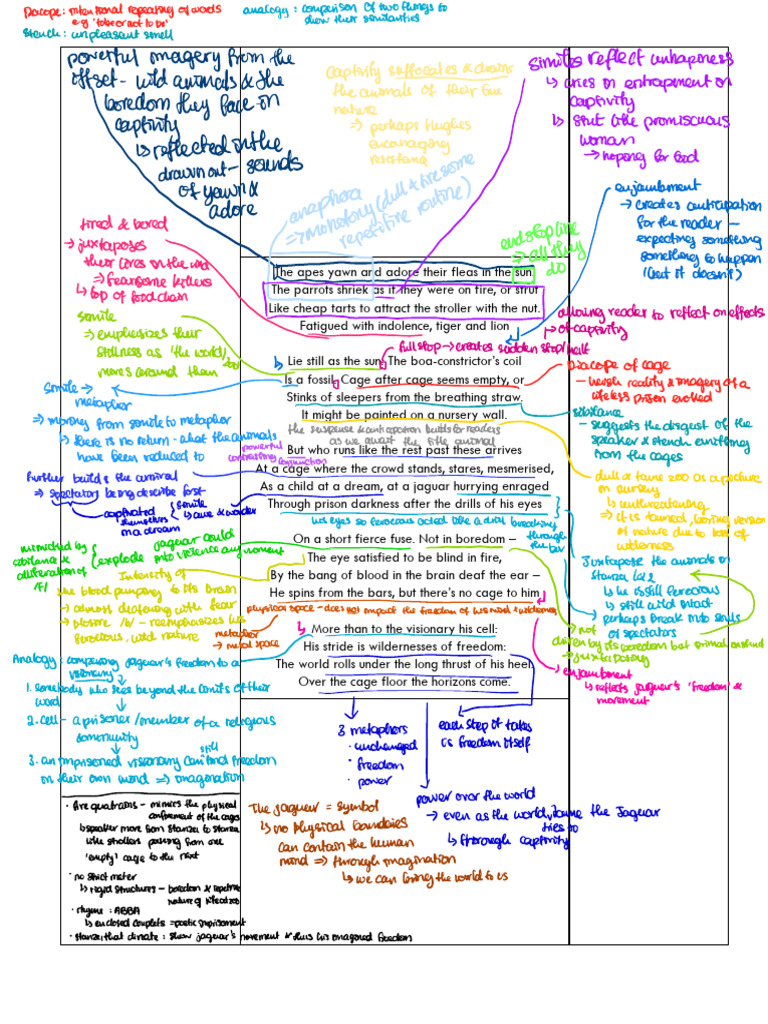 Diacope: intentional repeating of words
e.g 'to be or not to be'
Stench: unpleasant smell
analogy: comparison of two things to
show their similarities
powerful imagery from the
offset - wild animals & the
boredom they face in
captivity
↳ reflected in the
drawn out - sounds
of yawn &
adore
Captivity suffocates & drains
the animals of their true
nature
⇒ perhaps Hughes
encouraging
resistance
anaphora
⇒ monotony (dull & tiresome
repetitive routine)
similes reflect unhappiness
↳ cries on entrapment on
captivity
↳ strut like promiscuous
woman
→ hoping for food
end stop line
⇒ all they
do
enjambment
→ creates anticipation
for the reader -
expecting something
something to happen
(but it doesn't)
tired & bored
→ juxtaposes
their lives in the wild
⇒ fearsome killers
↳ top of food chain
simile
⇒ emphasizes their
stillness as the world,
moves around them
The apes yawn and adore their fleas in the sun.
The parrots shriek as if they were on fire, or strut
Like cheap tarts to attract the stroller with the nut.
Fatigued with indolence, tiger and lion
allowing reader to reflect on effects
of captivity
full stop → creates sudden stop/halt
Lie still as the sun. The boa-constrictor's coil
Is a fossil. Cage after cage seems empty, or
Stinks of sleepers from the breathing straw.
It might be painted on a nursery wall.
Diacope of cage
- harsh reality & imagery of a
lifeless prison evoked
sibilance
- suggests the disgust of the
speaker & stench emitting
from the cages
simile →
metaphor
⇒ moving from simile to metaphor
⇒ there is no return - what the animals
have been reduced to
the suspense & anticipation builds for readers
as we await the title animal
powerful
contrasting
conjunction
But who runs like the rest past these arrives
At a cage where the crowd stands, stares, mesmerised,
As a child at a dream, at a jaguar hurrying enraged
Through prison darkness after the drills of his eyes
further builds the animal
⇒ spectators being describe first
captivated
themselves
in a dream
simile
↳ awe & wonder
his eyes so ferocious acted like a drill breaking
through
the bar
dull & tame zoo as a picture
in nursery
↳ unthreatening
⇒ it is tamed, boring version
of nature due to loss of
wilderness
mimicked by
sibilance &
alliteration of
/f/
jaguar could
explode into violence any moment
On a short fierce fuse. Not in boredom –
The eye satisfied to be blind in fire,
By the bang of blood in the brain deaf the ear –
He spins from the bars, but there's no cage to him
Intensity of
the blood pumping to its brain
→ almost deafening with fear
→ plosive /b/ - reemphasizes his
ferocious, wild nature
Juxtapose the animals in
stanza 1 & 2
↳ he is still ferocious
↳ still wild intact
↳ perhaps break into souls
of spectators
→ not
driven by its boredom but primal instinct
→ juxtaposing
physical space - does not impact the freedom of his mind & wilderness
metaphor
→ mental space
More than to the visionary his cell:
His stride is wildernesses of freedom:
The world rolls under the long thrust of his heel.
Over the cage floor the horizons come.
enjambment
↳ reflects jaguar's 'freedom' &
movement
Analogy: comparing jaguar's freedom to a
visionary
1. somebody who sees beyond the limits of their
word
2. cell - a prisoner/member of a religious
community
3. an imprisoned visionary can still find freedom
in their own mind ⇒ imagination
3 metaphors
· unchanged
· freedom
· power
each step it takes
is freedom itself
power over the world
→ even as the world tries to tame the Jaguar
↳ through captivity
The jaguar = symbol
↳ no physical boundaries
can contain the human
mind ⇒ through imagination
↳ we can bring the world to us
· five quatrains - mimics the physical
confinement of the cages
↳ speaker move from stanza to stanza
like strollers passing from one
'empty' cage to the next
· no strict meter
↳ rigid structures - boredom & repetitive
nature of life at zoo
· rhyme: ABBA
↳ enclosed couplets = poetic imprisonment
· stanze that dinate: show jaguar's movement & thus his imagined freedom